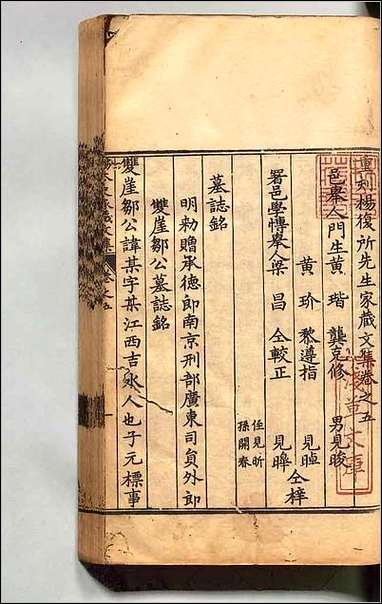 重刻楊復所先生家藏文集卷之五
邑舉人門生黃㙊 龔克修 男見晙
黃玠 黎遵指 見晫
署邑學博舉人梁昌 仝較正 見暭 仝梓
侄見昕
孫開春
墓誌銘
明勑贈承德郎南京刑部廣東司員外郎
雙崖鄒公墓誌銘
雙崖鄒公諱某字某江西吉水人也子元標事